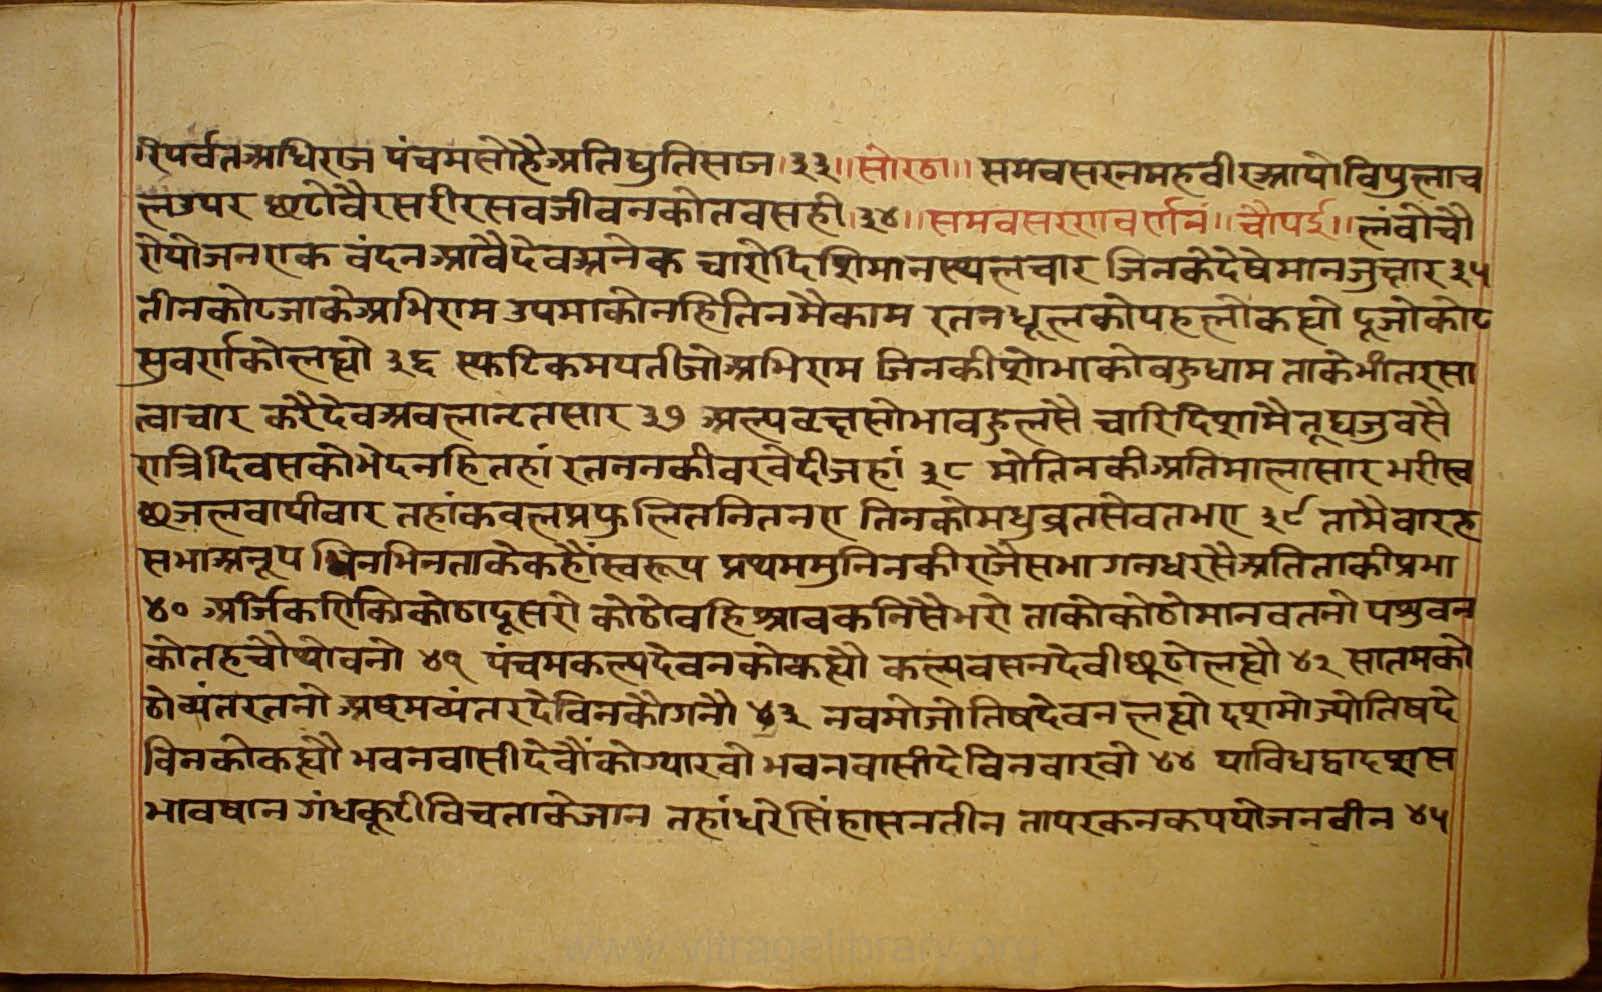 रिपर्वतअधिराज पंचमसोहैअतिद्युतिसाज।३३॥सोरठा॥ समवसरनमहवीरआयोविपुलाच
लउपर छाटोवैरसरीरसवजीवनकोतवसही।३४॥समवसरणवर्णनं॥चौपई॥लंवोचौ
रोयोजनएक वंदनआवैदेवअनेक चारोदिशिमानस्थलचार जिनकेदेषेमानजुन्नार३५
तीनकोटजाकेअभिराम उपमाकोनहितिनमैकाम रतनधूलकोपहलोकह्यो दूजोकोट
सुवर्णकोलह्यो ३६ स्फटिकमयतीजोअभिराम जिनकीशोभाकोवहुधाम ताकेभीतरसा
लाचार करैदेव ३७ सोभावहुलसै चारिदिशामै वसै
रात्रिदिवसकोभेदनहितहां रतननकीवरवेदीजहां ३८ मोतिनकीअतिमालासार भरीस्व
छजलवापीवार तहांकवलप्रफुलितनितनए तिनकोमधुव्रतसेवतभए ३९ तामैवारह
सभाअनूप भिनभिनताकेकहौंस्वरूप प्रथममुनिनकीराजैसभा गनधरसैअतिताकीप्रभा
४० कोठादूसरो कोठोवहिश्रावकनिसैभरो ताकोकोठोमानवतनो पशुवन
कोतहचौथोवनो ४१ पंचमकल्पदेवनकोकह्यौ कल्पवसनदेवीछठोलह्यौ ४२ सातमको
ठोव्यंतरतनो अष्टमव्यंतरदेविनकौगनौ ४३ नवमोजोतिषदेवन लह्यो दशमोज्योतिषदे
विनकोकह्यौ भवनवासीदेवौंकोग्यारवो भवनवासीदेविनवारवो ४४ याविधद्वादशस
भावषान गंधकूटीविचताकेजान तहांधरेसिंहासनतीन तापरकनकपयोजनवीन ४५
www.vitragelibrary.org